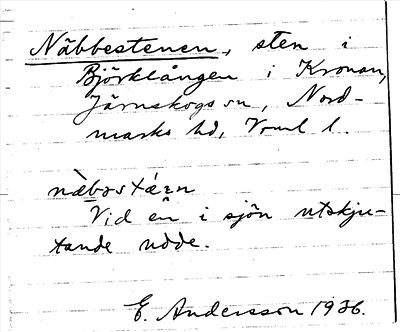 Näbbestenen, sten i
Björklången i Kronan,
Järnskogs sn, Nord-
marks hd, Vrml l.
näbəstæ̀n
Vid en i sjön utskju-
tande udde.
E. Andersson 1936.